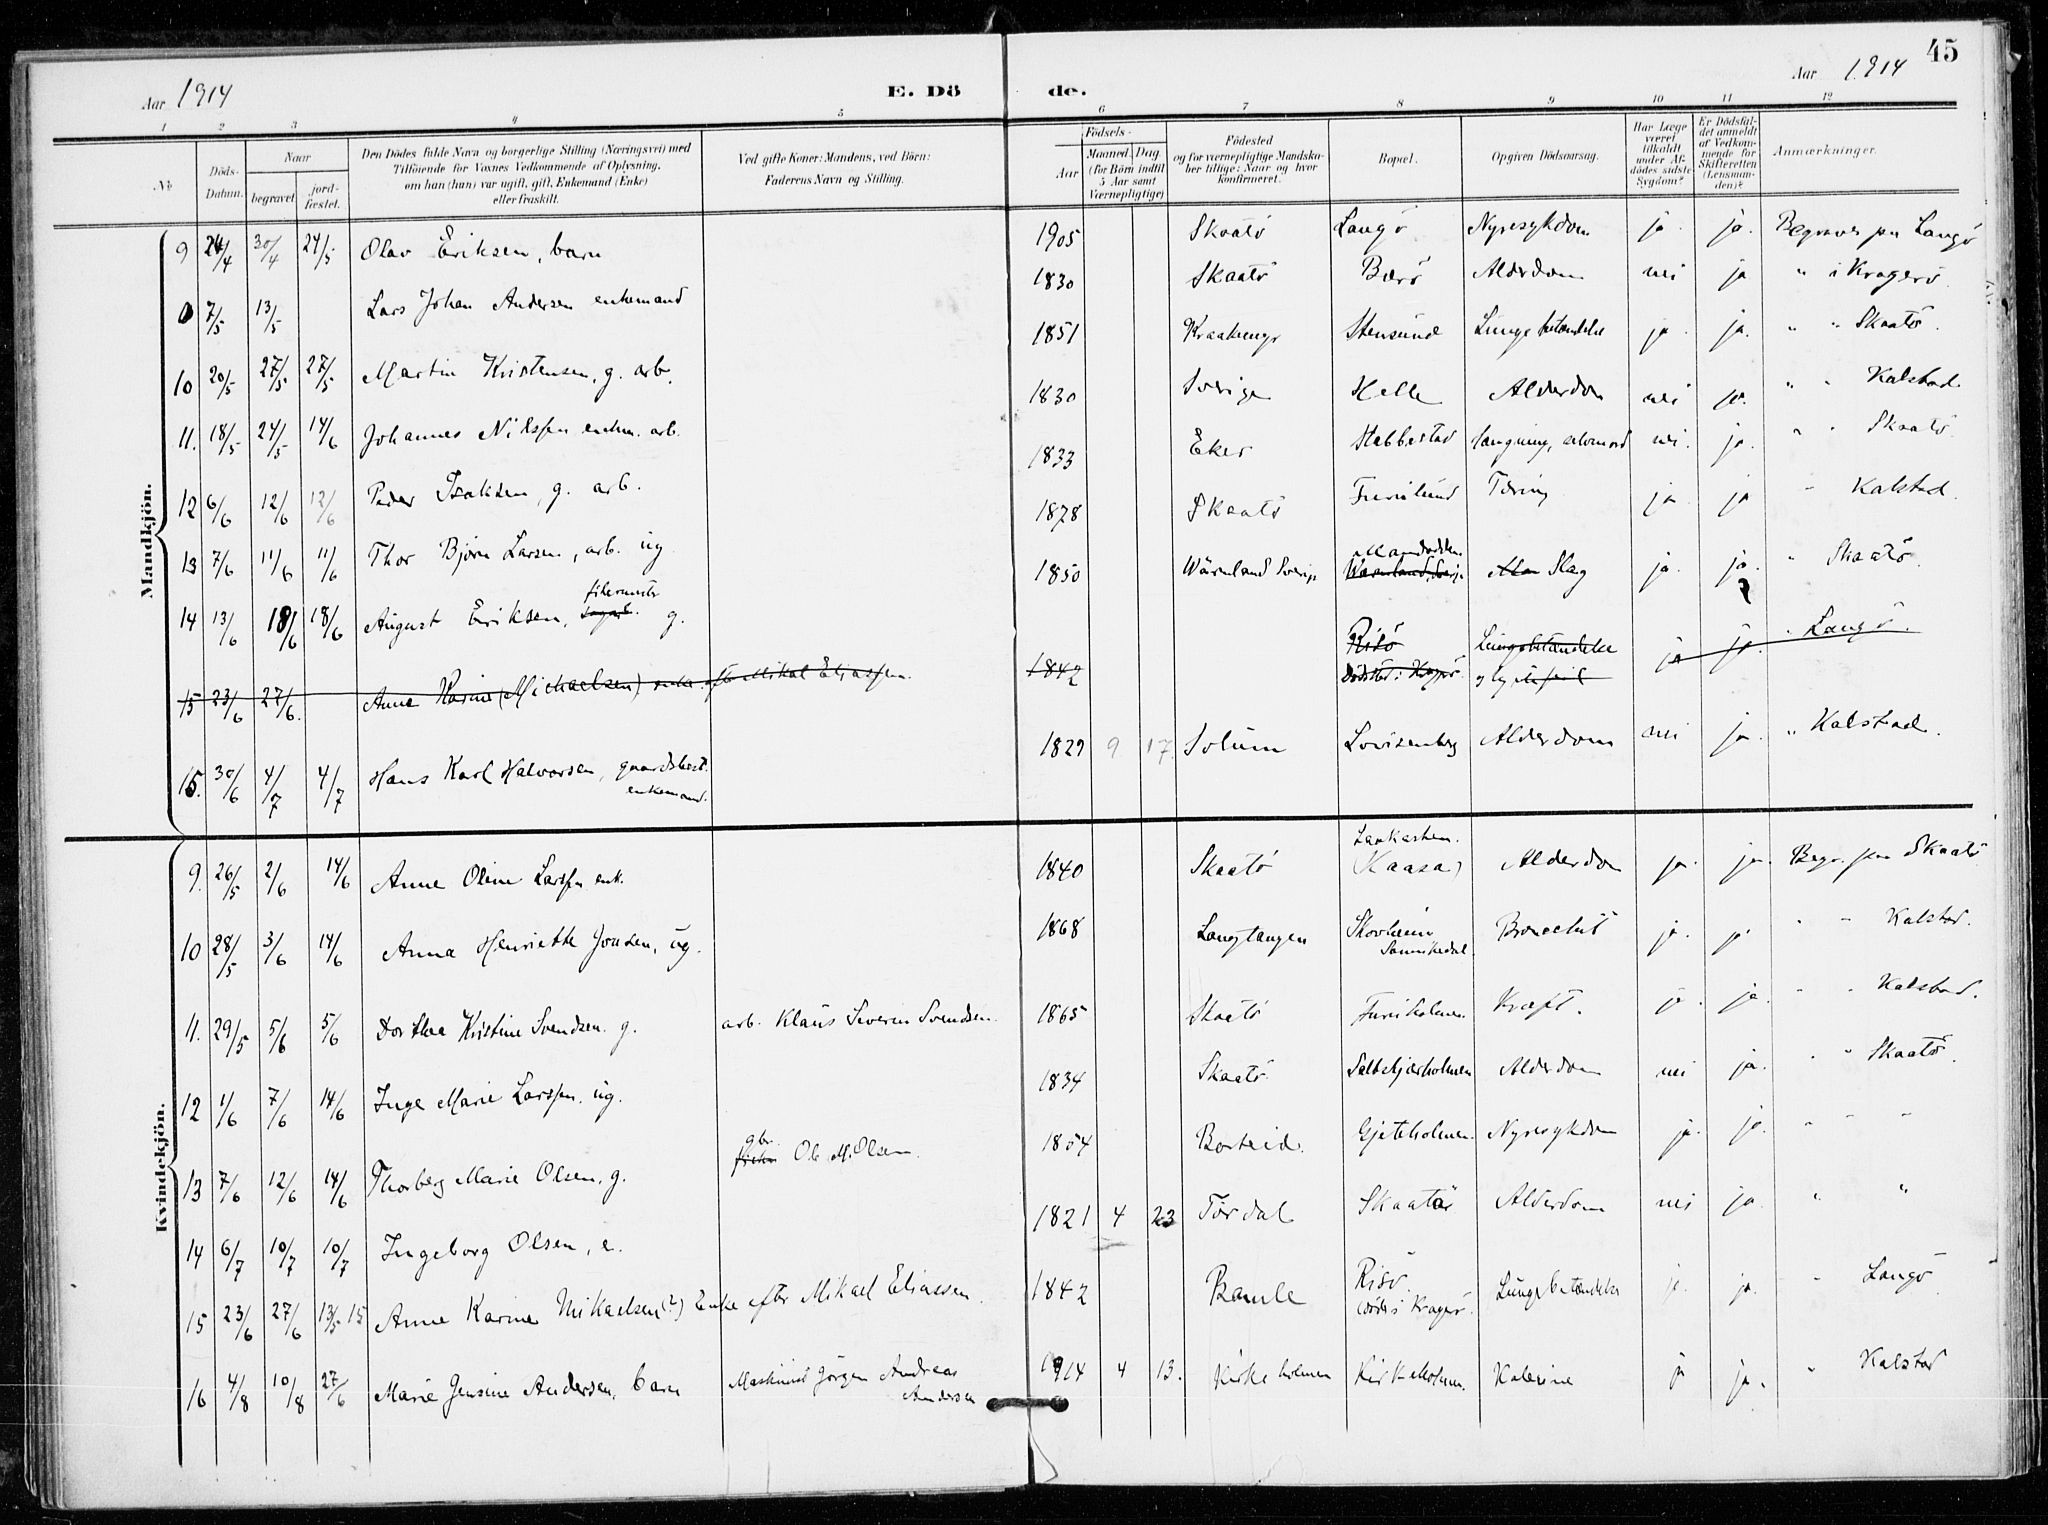 45
Aar 1914 E. Döde. Aar 1914
1 2 3 4 5 6 7 8 9 10 11 12
№ Döds-Datum. Naar begravet. jordfæstet. Den Dödes fulde Navn og borgerlige Stilling (Næringsvei) med Tilföiende for Voxnes Vedkommende af Oplysning, om han (hun) var ugift, gift, Enkemand (Enke) eller fraskilt. Ved gifte Koner: Mandens, ved Börn: Faderens Navn og Stilling. Födsels- Aar Maaned. Dag. (for Börn indtil 5 Aar samt Værnepligtige) Födested og for værnepligtige Mandskaber tillige: Naar og hvor konfirmeret. Bopæl. Opgiven Dödsaarsag. Har Læge været tilkaldt under Afdödes sidste Sygdom? Er Dödsfaldet anmeldt af Vedkommende for Skifteretten (Lensmanden)? Anmærkninger.
Mandkjön.
9 24/4 30/4 24/5 Olav Eriksen, barn 1905 Skaatö Langö Nyresykdom ja ja. Begraves paa Langö
7/5 13/5 Lars Johan Andersen enkemand 1830 Skaatö Bærö Alderdom nei ja " i Kragerö.
10 20/5 27/5 27/5 Martin Kristensen, g. arb. 1851 Stensund Lungebetændelse ja. ja. " " Skaatö.
11. 18/5 24/5 14/6 Johannes Nilssen enkm. arb. 1830 Sverige Helle Alderdom nei ja. " " Kalstad.
12 6/6 12/6 12/6 Peder Isaksen, g. arb. 1833 Eker Stabbestad hængning, selvmord nei. ja. " " Skaatö
13 7/6 11/6 11/6 Thor Bjørn Larsen, arb. ug. 1878 Skaatö Furulund Tæring ja ja " Kalstad.
14 13/6 18/6 18/6 August Eriksen, g. 1850 Wärmland Sverige Slag ja. ja. " Skaatö.
15 23/6 27/6. Anne Karine (Michaelsen) enke efter Mikal Eliassen. 1842 Risö Dödsted i Kragerö. Lungebetændelse ja ja. " Langö.
15. 30/6 4/7 4/7 Hans Karl Halvorsen, gaardsbest. enkemand. 1829 9 17. Solum Lovisenberg Alderdom nei ja. " Kalstad.
Kvindekjön.
9. 26/5 2/6 14/6 Anne Oline Larssen enk. 1840 Skaatö (Kaasa) Alderdom ja. ja. Begr. paa Skaatö
10 28/5 3/6 14/6 Anna Henriette Jonsen, ug. 1868 Langtangen Skovheim Sannikedal. Bronchit ja. ja " " Kalstad.
11. 29/5 5/6 5/6 Dorthea Kristine Svendsen. g. arb. Klaus Severin Svendsen. 1865 Skaatö Furuholmen. Kræft. ja. ja. " " Kalstad.
12 1/6 7/6 14/6 Inge Marie Larssen. ug. 1834 Skaatö. Saltskjærholmen Alderdom nei ja. " " Skaatö.
13 7/6 12/6 14/6 Thorberg Marie Olsen, g. gbr. Ole M. Olsen. 1854 Borteid. Gjeteholmen. Nyresykdom ja. ja. " " "
14 6/7 10/7 10/7 Ingeborg Olsen, e. 1821 4 23 Tördal Skaatö Alderdom nei ja. " "
15 23/6 27/6 13/5 15 Anne Karine Mikaelsen(?) Enke efter Mikael Eliassen. 1842 Bamle Risö. (döde i Kragerö. Lungebetændelse ja. ja. " Langö
16 4/8 10/8 27/6 Marie Jensine Andersen, barn Maskinist Jörgen Andreas Andersen 1914 4 13. Kirkeholmen Kirkeholmen. Kolerine ja ja. " Kalstad